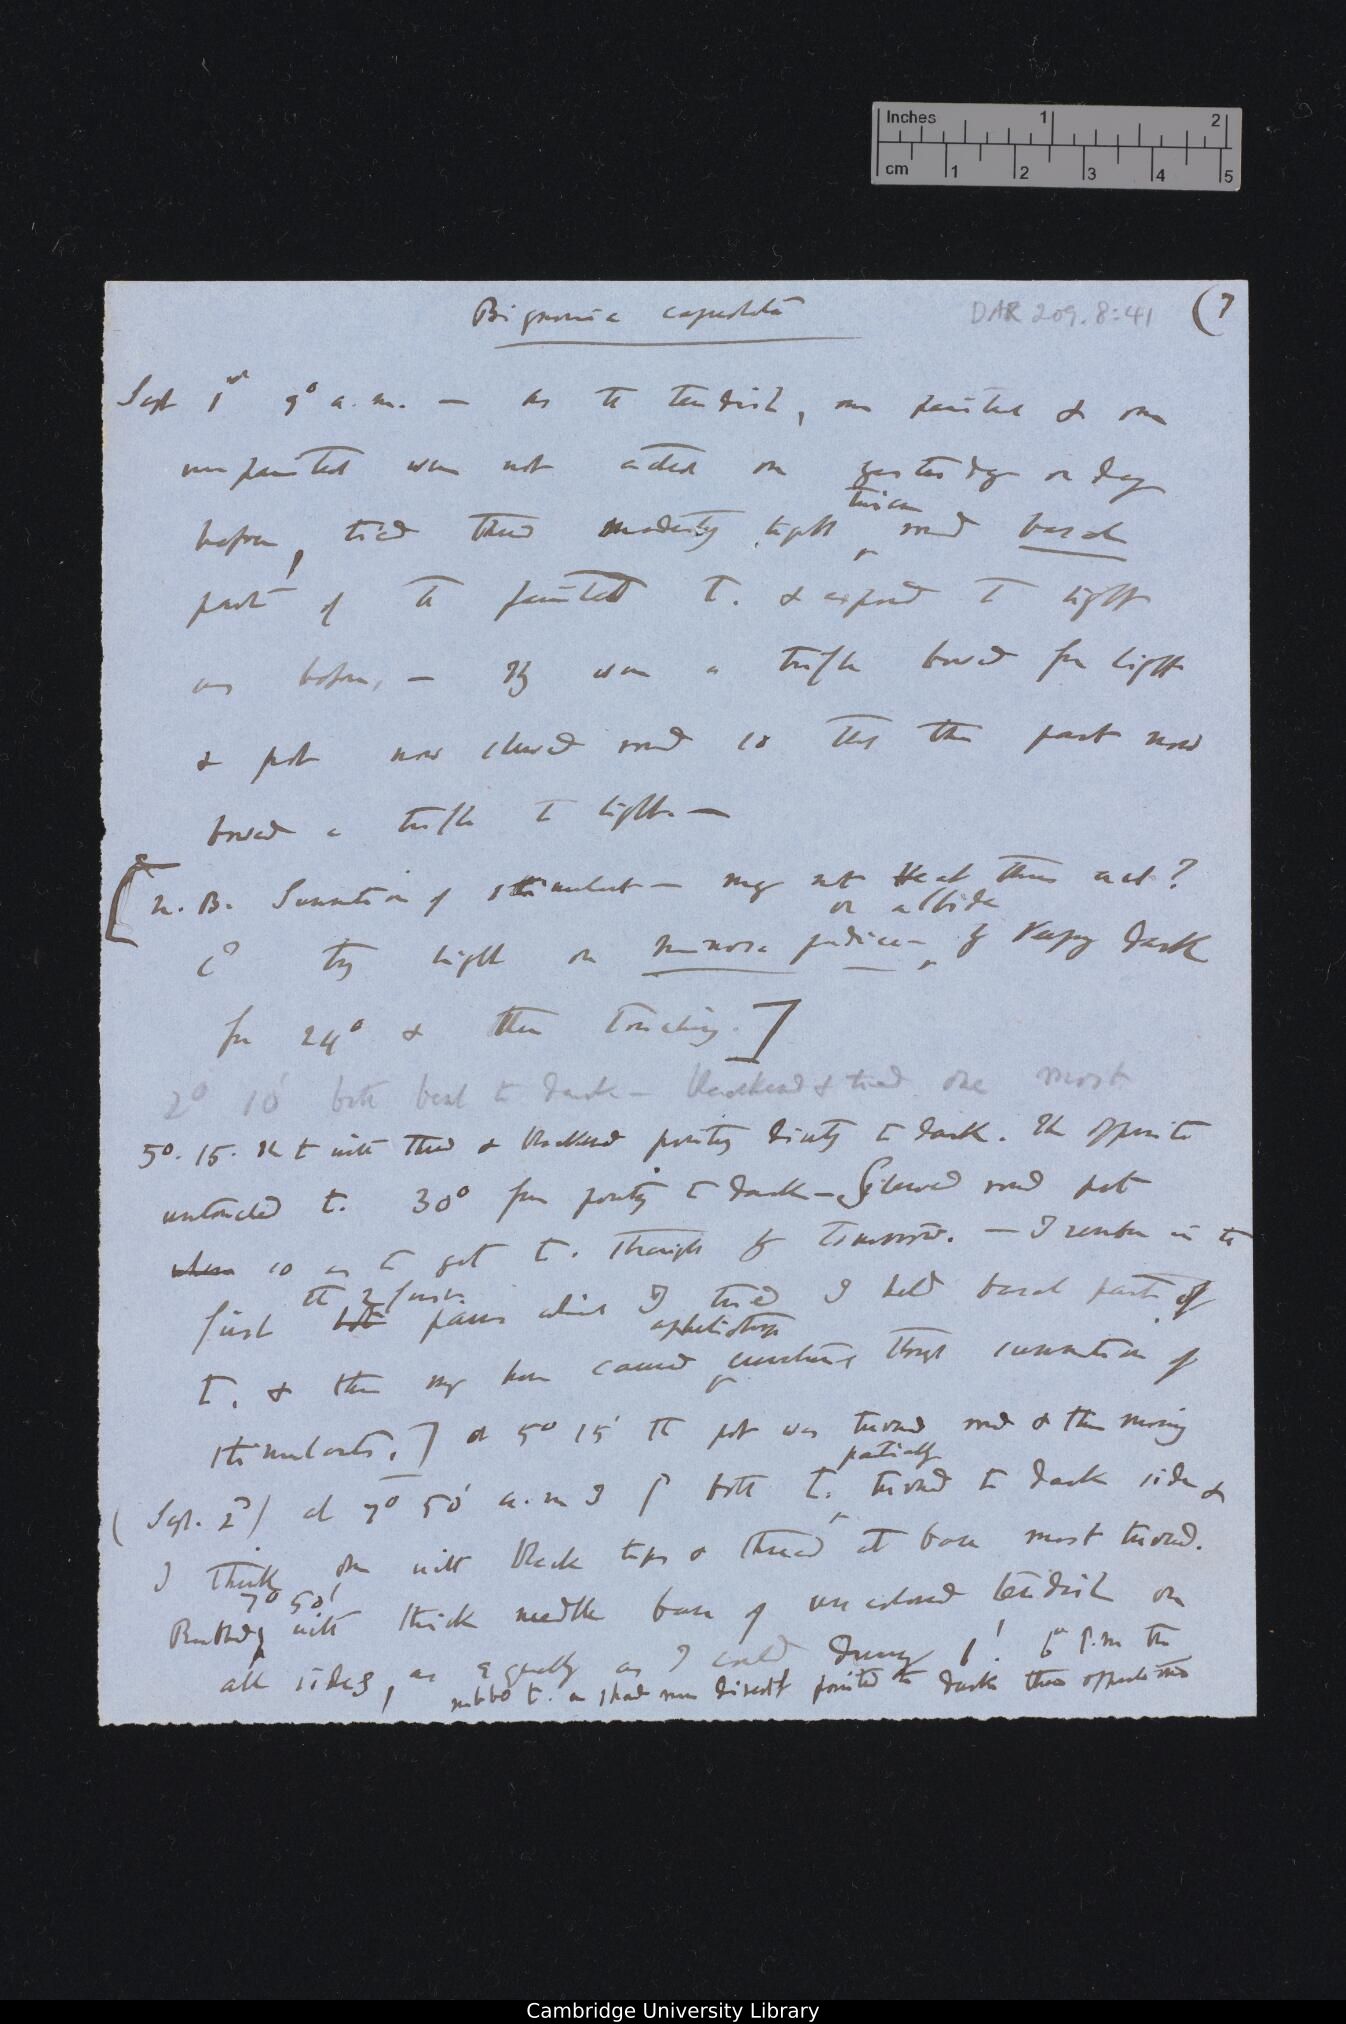 Inches 1 2
cm 1 2 3 4 5
Bignonia capreolata
DAR 209.8:41
(7
Sept 1st 9° a.m. — As the tendrils, one painted & one
unpainted were not acted on yesterday or day
before, tied thread moderately tight twice round basal
part of the painted T. & exposed to light
as before, — It was a trifle bowed from light
& pot now slewed round so that the part now
bowed a trifle to light —
[N.B. Summation of stimulant — may not Heat thus act?
try light on Mimosa pudica or albida by keeping dark
for 24° & then touching.]
2° 10' both bent to dark — blackened & tied one most
5°. 15. The t with thread & blackened pointing directly to dark. The opposite
untouched t. 30° from pointing to dark — Slewed round pot
so as to get t. straight by tomorrow. — I remember in the
first the 2 cases which I tried I held basal part of
T. & this may have caused apheliotropic curvature through summation of
stimulants.] at 5° 15' the pot was turned round & this morning
(Sept. 2d) at 7° 50' a.m I both T. partially turned to dark side &
I think one with black tips & thread at base most turned.
Rubbed 7° 50' with thick needle base of uncoloured tendril on
all sides, as equally as I could during 1'. 6° P.m the
rubbed t. a shade more directly pointed to dark than opposite one